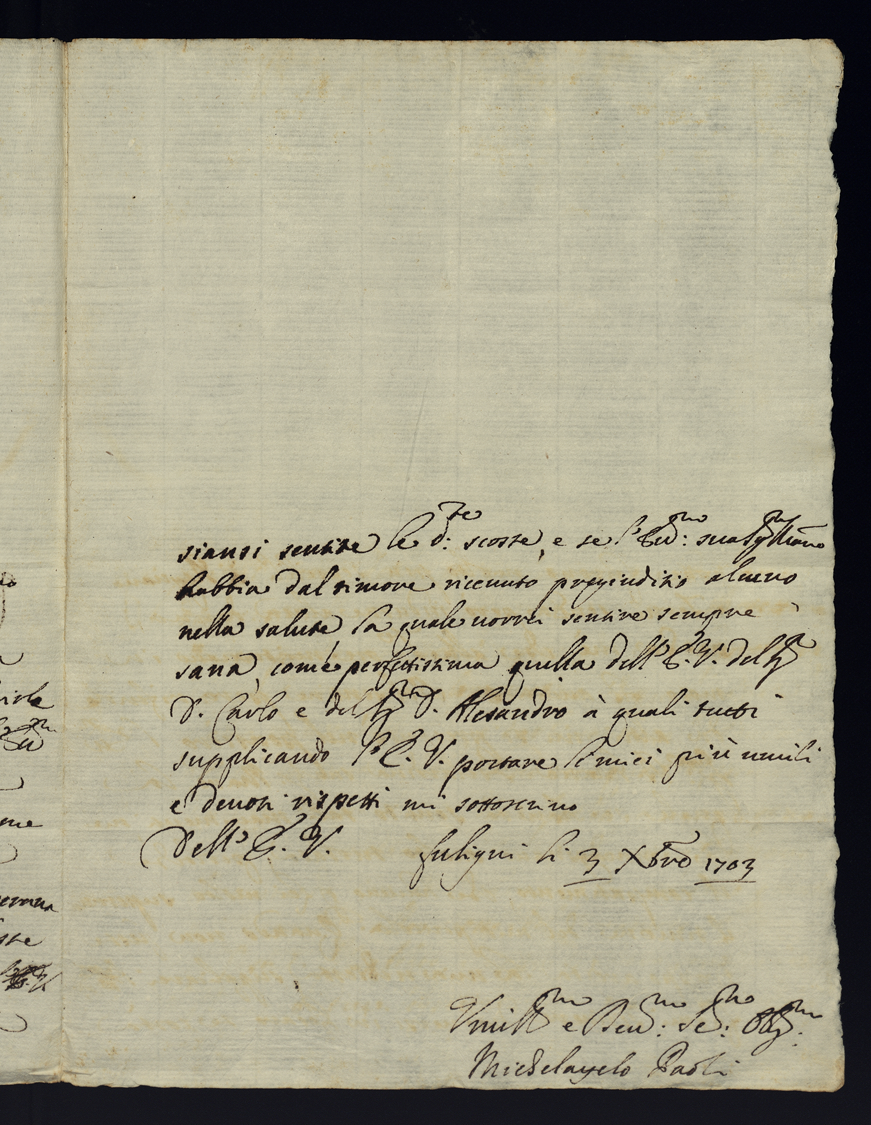 siansi sentite le d.te scosse, e se l'Em.mo: suo Sig.r
habbia dal timore riceuuto pregiuditio alcuno
nella salute, la quale uorrei sentire sempre
sana, come perfettissima quella dell'E. V. del Sig.r
D. Carlo e del Sig.r D. Alesandro à quali tutti
supplicando l'E. V. portare li miei più umili
e deuoti rispetti mi sottoscriuo
Dell'E. V. fuligni li 3 Xbre 1703
Vmill.mo e Deu.mo: Se.re: Obblig.mo:
Michelangelo Paoli